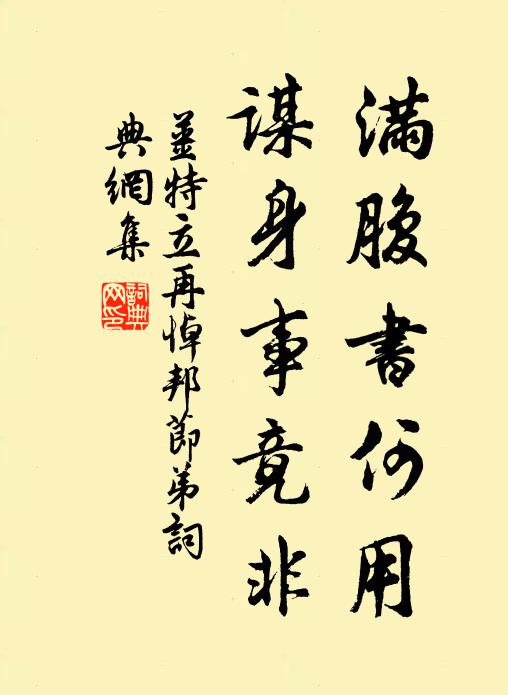 滿腹書何用
謀身事竟非
姜特立再悼邦節弟詞
典網集
詞典
网印